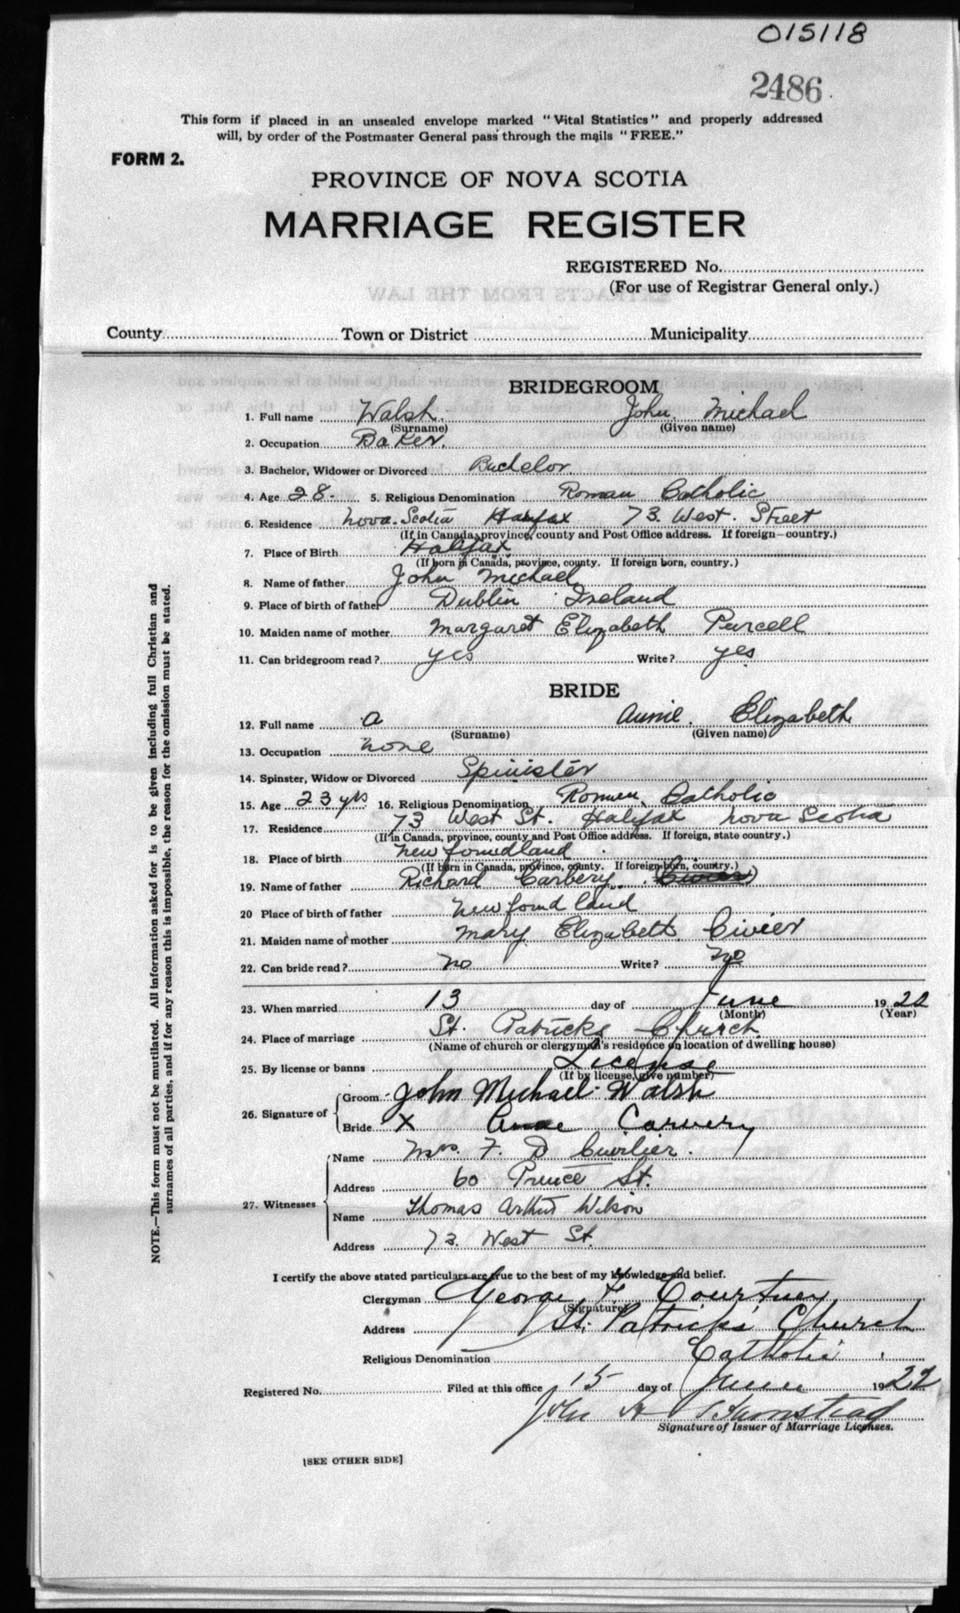 015118
2486
This form if placed in an unsealed envelope marked "Vital Statistics" and properly addressed
will, by order of the Postmaster General pass through the mails "FREE."
FORM 2.
PROVINCE OF NOVA SCOTIA
MARRIAGE REGISTER
REGISTERED No.
(For use of Registrar General only.)
County Town or District Municipality
BRIDEGROOM
1. Full name Walsh John Michael
(Surname) (Given name)
2. Occupation Baker
3. Bachelor, Widower or Divorced Bachelor
4. Age 28 5. Religious Denomination Roman Catholic
6. Residence Nova Scotia Halifax 73 West Street
(If in Canada, province, county and Post Office address. If foreign—country.)
7. Place of Birth Halifax
(If born in Canada, province, county. If foreign born, country.)
8. Name of father John Michael
9. Place of birth of father Dublin Ireland
10. Maiden name of mother Margaret Elizabeth Purcell
11. Can bridegroom read? yes Write? yes
BRIDE
12. Full name a Annie Elizabeth
(Surname) (Given name)
13. Occupation none
14. Spinster, Widow or Divorced Spinister
15. Age 23 yrs 16. Religious Denomination Roman Catholic
17. Residence 73 West St. Halifax Nova Scotia
(If in Canada, province, county and Post Office address. If foreign, state country.)
18. Place of birth new foundland
(If born in Canada, province, county. If foreign born, country.)
19. Name of father Richard Carbery
20 Place of birth of father new found land
21. Maiden name of mother Mary Elizabeth Civier
22. Can bride read? no Write? no
23. When married 13 day of June 1922
(Month) (Year)
24. Place of marriage St. Patricks Church
(Name of church or clergyman's residence or location of dwelling house)
25. By license or banns License
(If by license, give number)
26. Signature of Groom John Michael Walsh
Bride X Carvery
27. Witnesses Name Mrs. F. D
Address 60 Prince St.
Name Thomas Arthur Wilson
Address 73 West St.
I certify the above stated particulars are true to the best of my knowledge and belief.
Clergyman George F Courtney
(Signature)
Address St. Patrick's Church
Religious Denomination Catholic
Registered No. Filed at this office 15 day of June 1922
John H
Signature of Issuer of Marriage Licenses.
[SEE OTHER SIDE]
NOTE.—This form must not be mutilated. All information asked for is to be given including full Christian and
surnames of all parties, and if for any reason this is impossible, the reason for the omission must be stated.